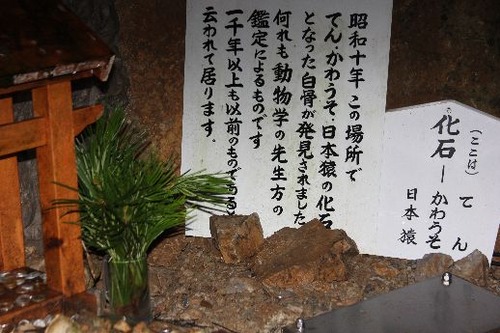 昭和十年この場所で
てん・かわうそ・日本猿の化石
となった白骨が発見されました
何れも動物学の先生方の
鑑定によるものです
一千年以上も以前のものであると
云われて居ります.
(ここは)
化石ー
てん
かわうそ
日本猿